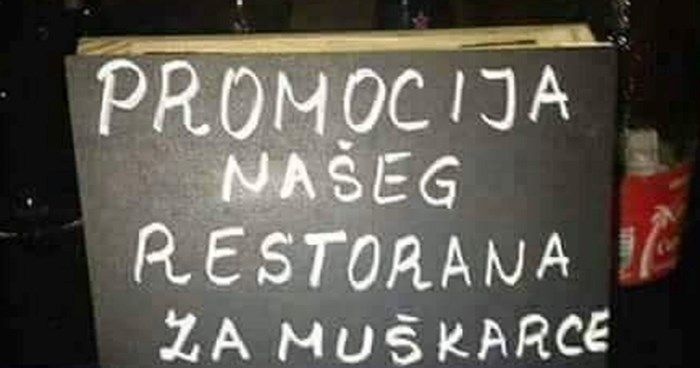 PROMOCIJA
NAŠEG
RESTORANA
ZA MUŠKARCE